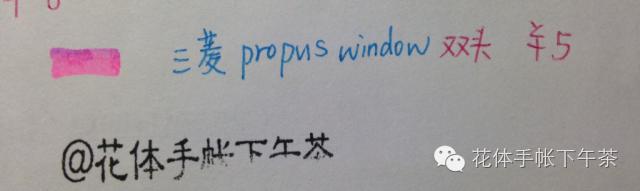 三菱 propus window 双头 ¥5
@花体手帐下午茶
花体手帐下午茶